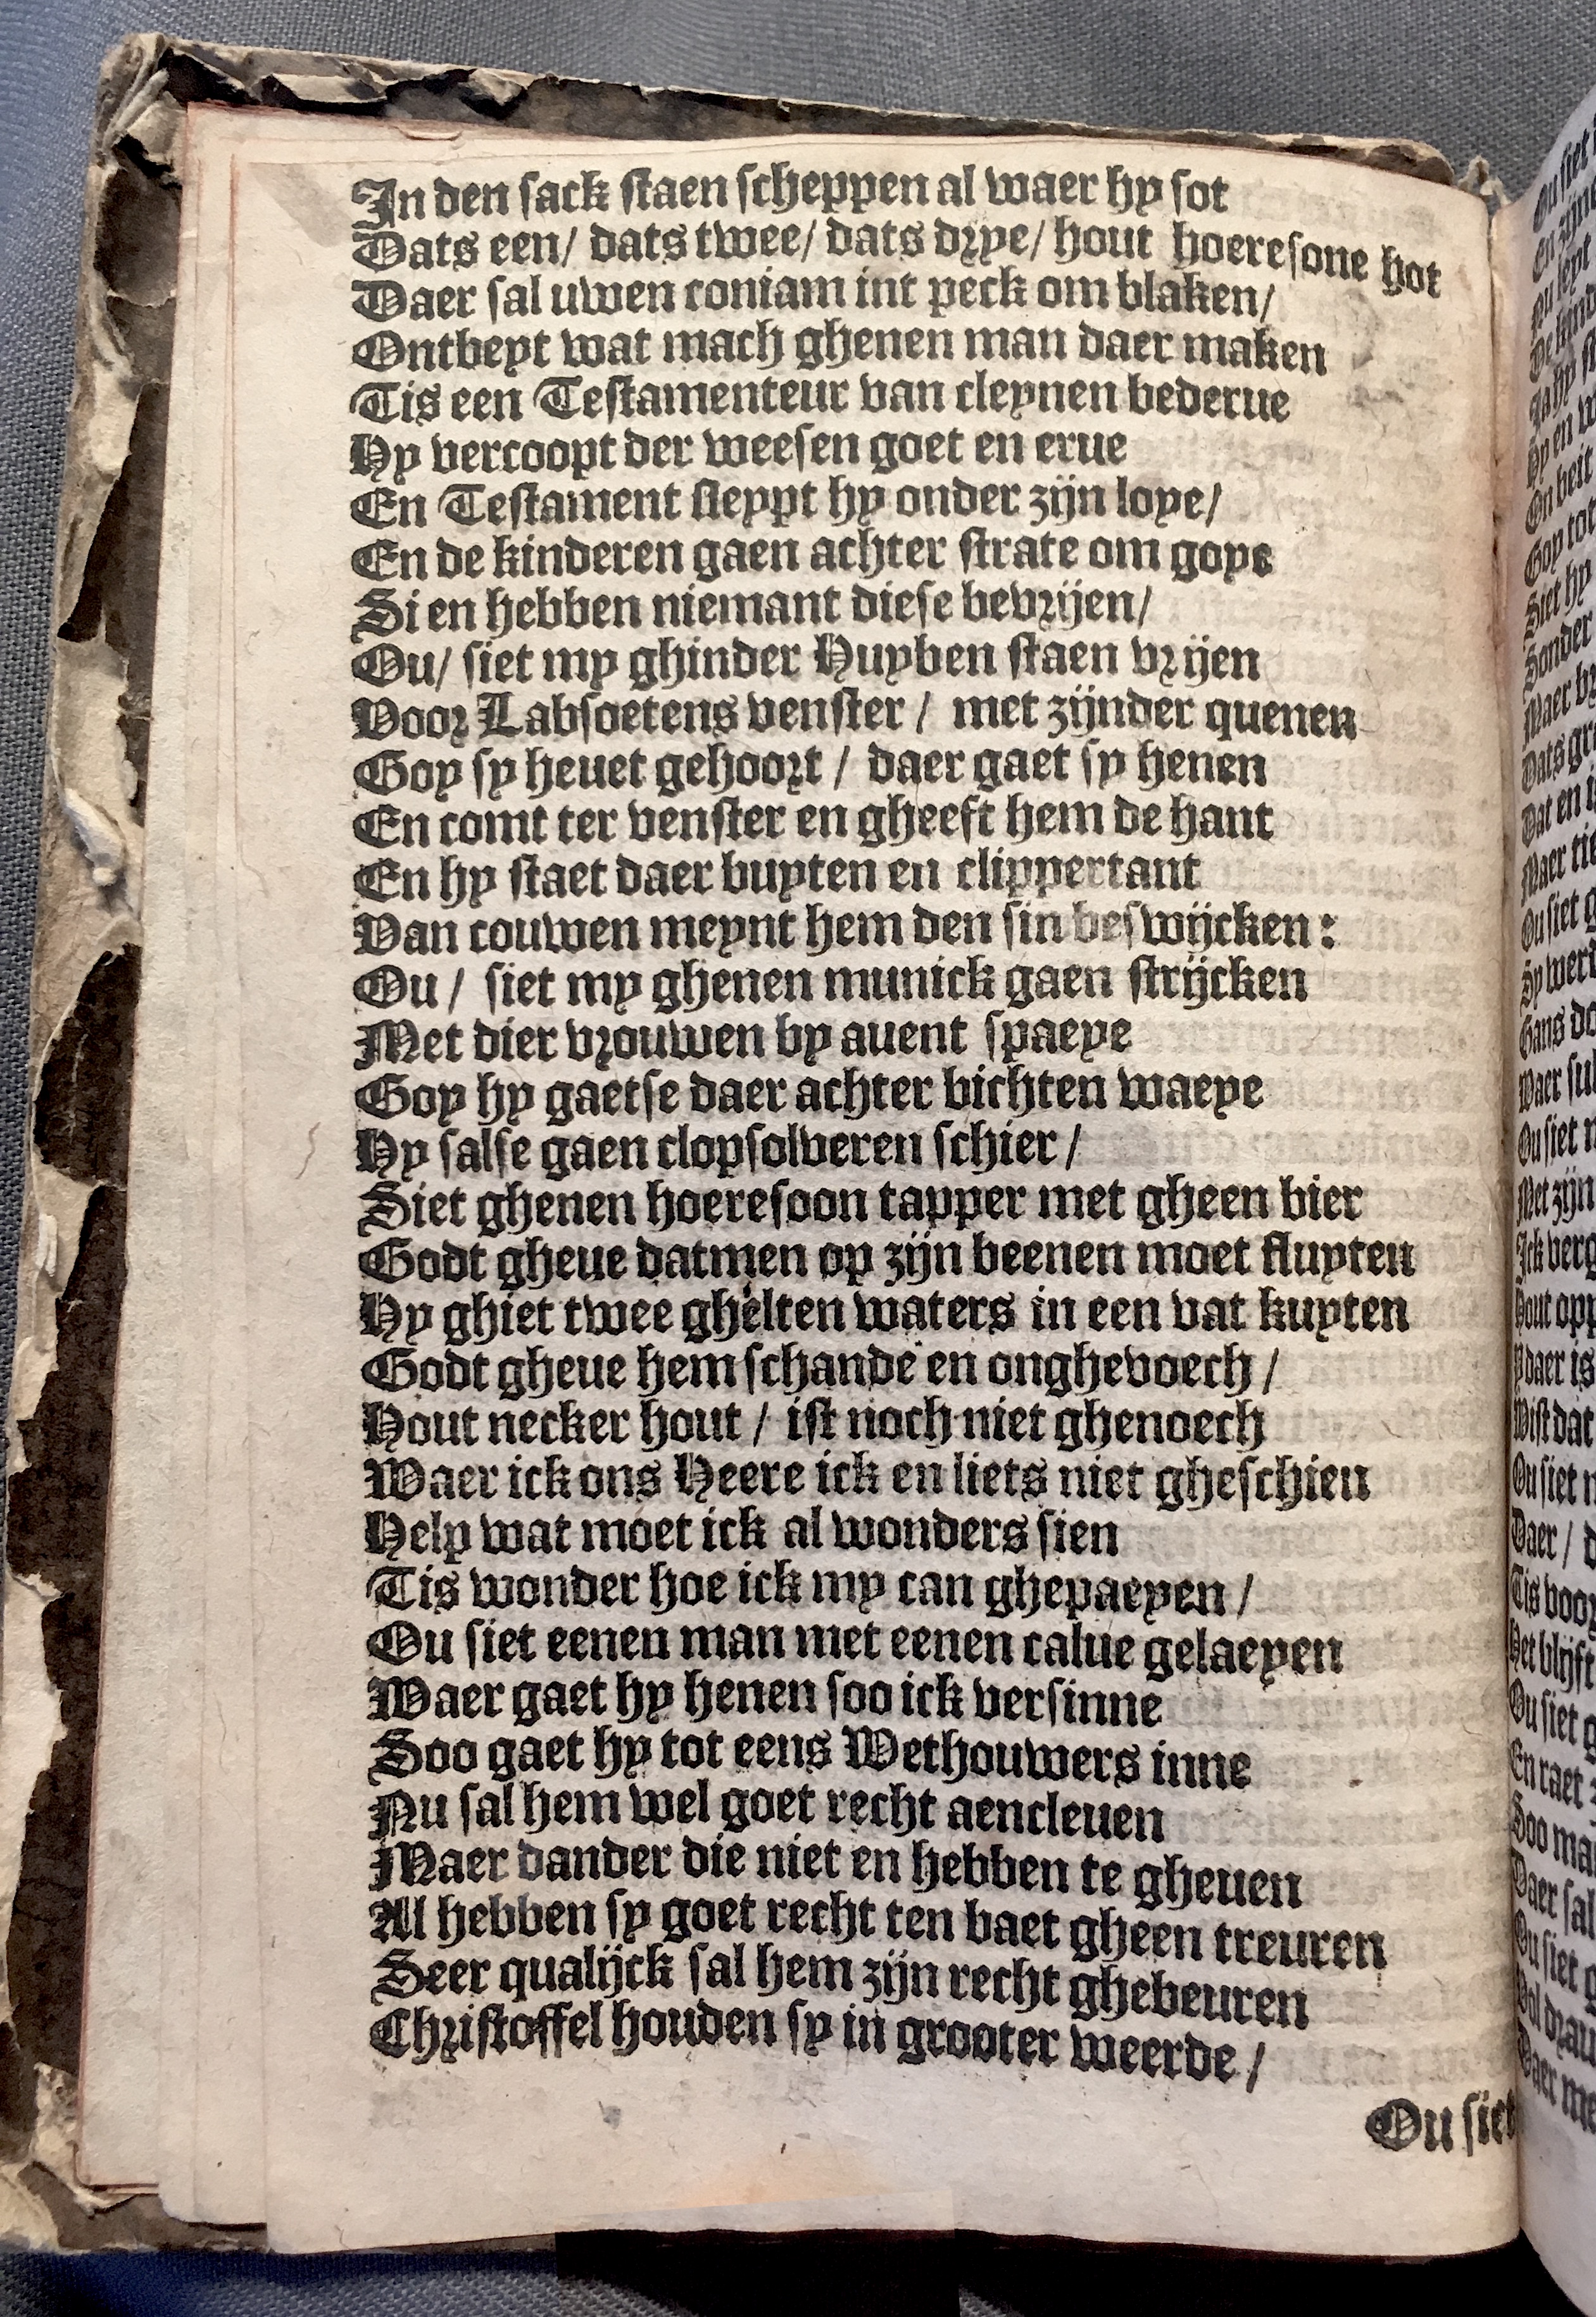 In den sack staen scheppen al waer hy sot
Dats een/ dats twee/ dats drye/ hout hoeresone hot
Daer sal uwen coniam int peck om blaken/
Ontbeyt wat mach ghenen man daer maken
Tis een Testamenteur van cleynen bederue
Hy vercoopt der weesen goet en erue
En Testament sleypt hy onder zijn loye/
En de kinderen gaen achter strate om goye
Si en hebben niemant diese bevrijen/
Ou/ siet my ghinder Huyben staen vrijen
Voor Labsoetens venster / met zijnder quenen
Goy sy heuet gehoort / daer gaet sy henen
En comt ter venster en gheeft hem de hant
En hy staet daer buyten en clippertant
Van couwen meynt hem den sin beswijcken:
Ou / siet my ghenen munick gaen strijcken
Met dier vrouwen by auent spaeye
Goy hy gaetse daer achter bichten waeye
Hy salse gaen clopsolveren schier /
Siet ghenen hoeresoon tapper met gheen bier
Godt gheue datmen op zijn beenen moet fluyten
Hy ghiet twee ghelten waters in een vat kuyten
Godt gheue hem schande en onghevoech /
Hout necker hout / ist noch niet ghenoech
Waer ick ons Heere ick en liets niet gheschien
Help wat moet ick al wonders sien
Tis wonder hoe ick my can ghepaeyen /
Ou siet eenen man met eenen calue gelaeyen
Waer gaet hy henen soo ick versinne
Soo gaet hy tot eens Wethouwers inne
Nu sal hem wel goet recht aencleuen
Maer dander die niet en hebben te gheuen
Al hebben sy goet recht ten baet gheen treuren
Seer qualijck sal hem zijn recht ghebeuren
Christoffel houden sy in grooter weerde /
Ou siet